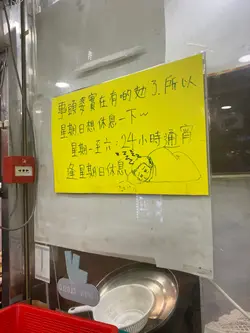 車頭婆實在有啲攰了,所以
星期日想休息一下~
星期一至六:24小時通宵
逢星期日休息